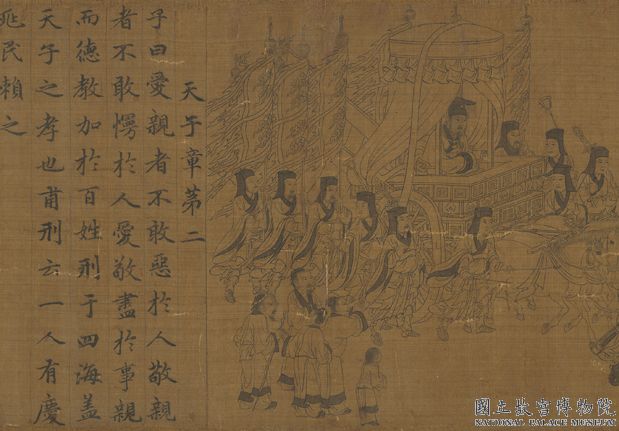 天子章第二
子曰愛親者不敢惡於人敬親
者不敢慢於人愛敬盡於事親
而德教加於百姓刑于四海蓋
天子之孝也甫刑云一人有慶
兆民賴之
國立故宮博物院
NATIONAL PALACE MUSEUM